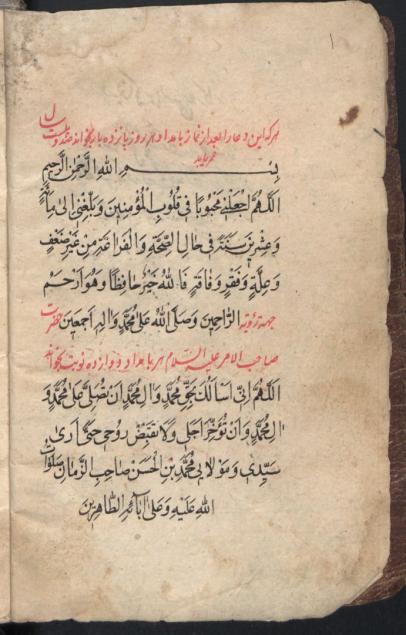 ۱
هر که این دعا را بعد از نماز بامداد هر روز پانزده بار بخواند صد و بیست سال
عمر یابد
بِسْمِ اللهِ الرَّحْمٰنِ الرَّحیمِ
اَللّٰهُمَّ اجْعَلْنی مَحْبُوبًا فی قُلُوبِ الْمُؤْمِنینَ وَبَلِّغْنی اِلیٰ مِأَةٍ
وَعِشْرینَ سَنَةً فی حالِ الصِّحَّةِ وَالْفَراغَةِ مِنْ غَیْرِ ضَعْفٍ
وَعِلَّةٍ وَفَقْرٍ وَفاقَةٍ فَاللهُ خَیْرٌ حافِظًا وَهُوَ اَرْحَمُ
الرّاحِمینَ وَصَلَّی اللهُ عَلیٰ مُحَمَّدٍ وَالِهِ اَجْمَعینَ جهة رؤیة حضرت
صاحب الامر علیه السلام هر بامداد دوازده نوبت بخواند
اَللّٰهُمَّ اِنّی اَسْأَلُكَ بِحَقِّ مُحَمَّدٍ وَالِ مُحَمَّدٍ اَنْ تُصَلِّیَ عَلیٰ مُحَمَّدٍ وَ
الِ مُحَمَّدٍ وَاَنْ تُؤَخِّرَ اَجَلی وَلا تَقْبِضْ رُوحی حَتّیٰ اَریٰ
سَیِّدی وَمَوْلایی مُحَمَّدِ بْنِ الْحَسَنِ صاحِبِ الزَّمانِ صَلَوٰاتُ
اللهِ عَلَیْهِ وَعَلیٰ اٰبائِهِ الطّاهِرینَ